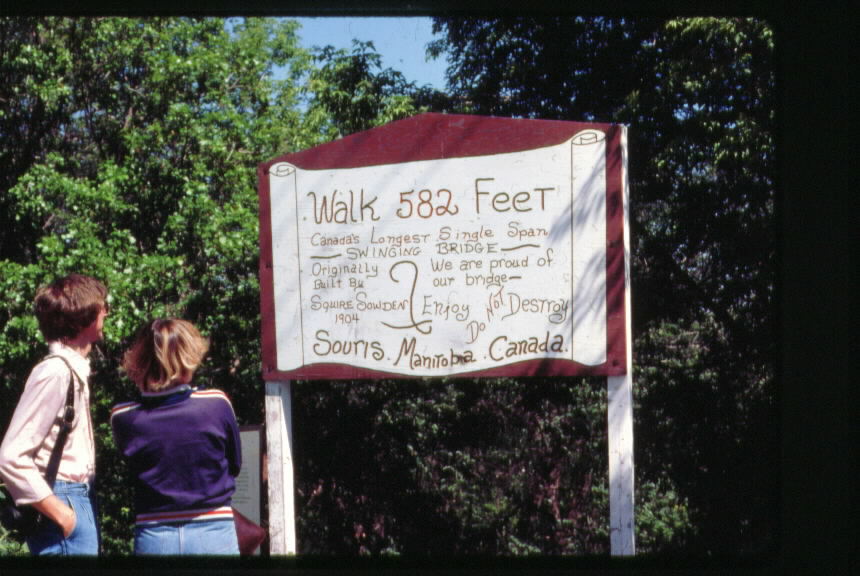 Walk 582 Feet
Canada's Longest Single Span
— SWINGING BRIDGE —
Originally
Built By
Squire Sowden
1904
We are proud of
our bridge—
Enjoy Do Not Destroy
Souris. Manitoba. Canada.